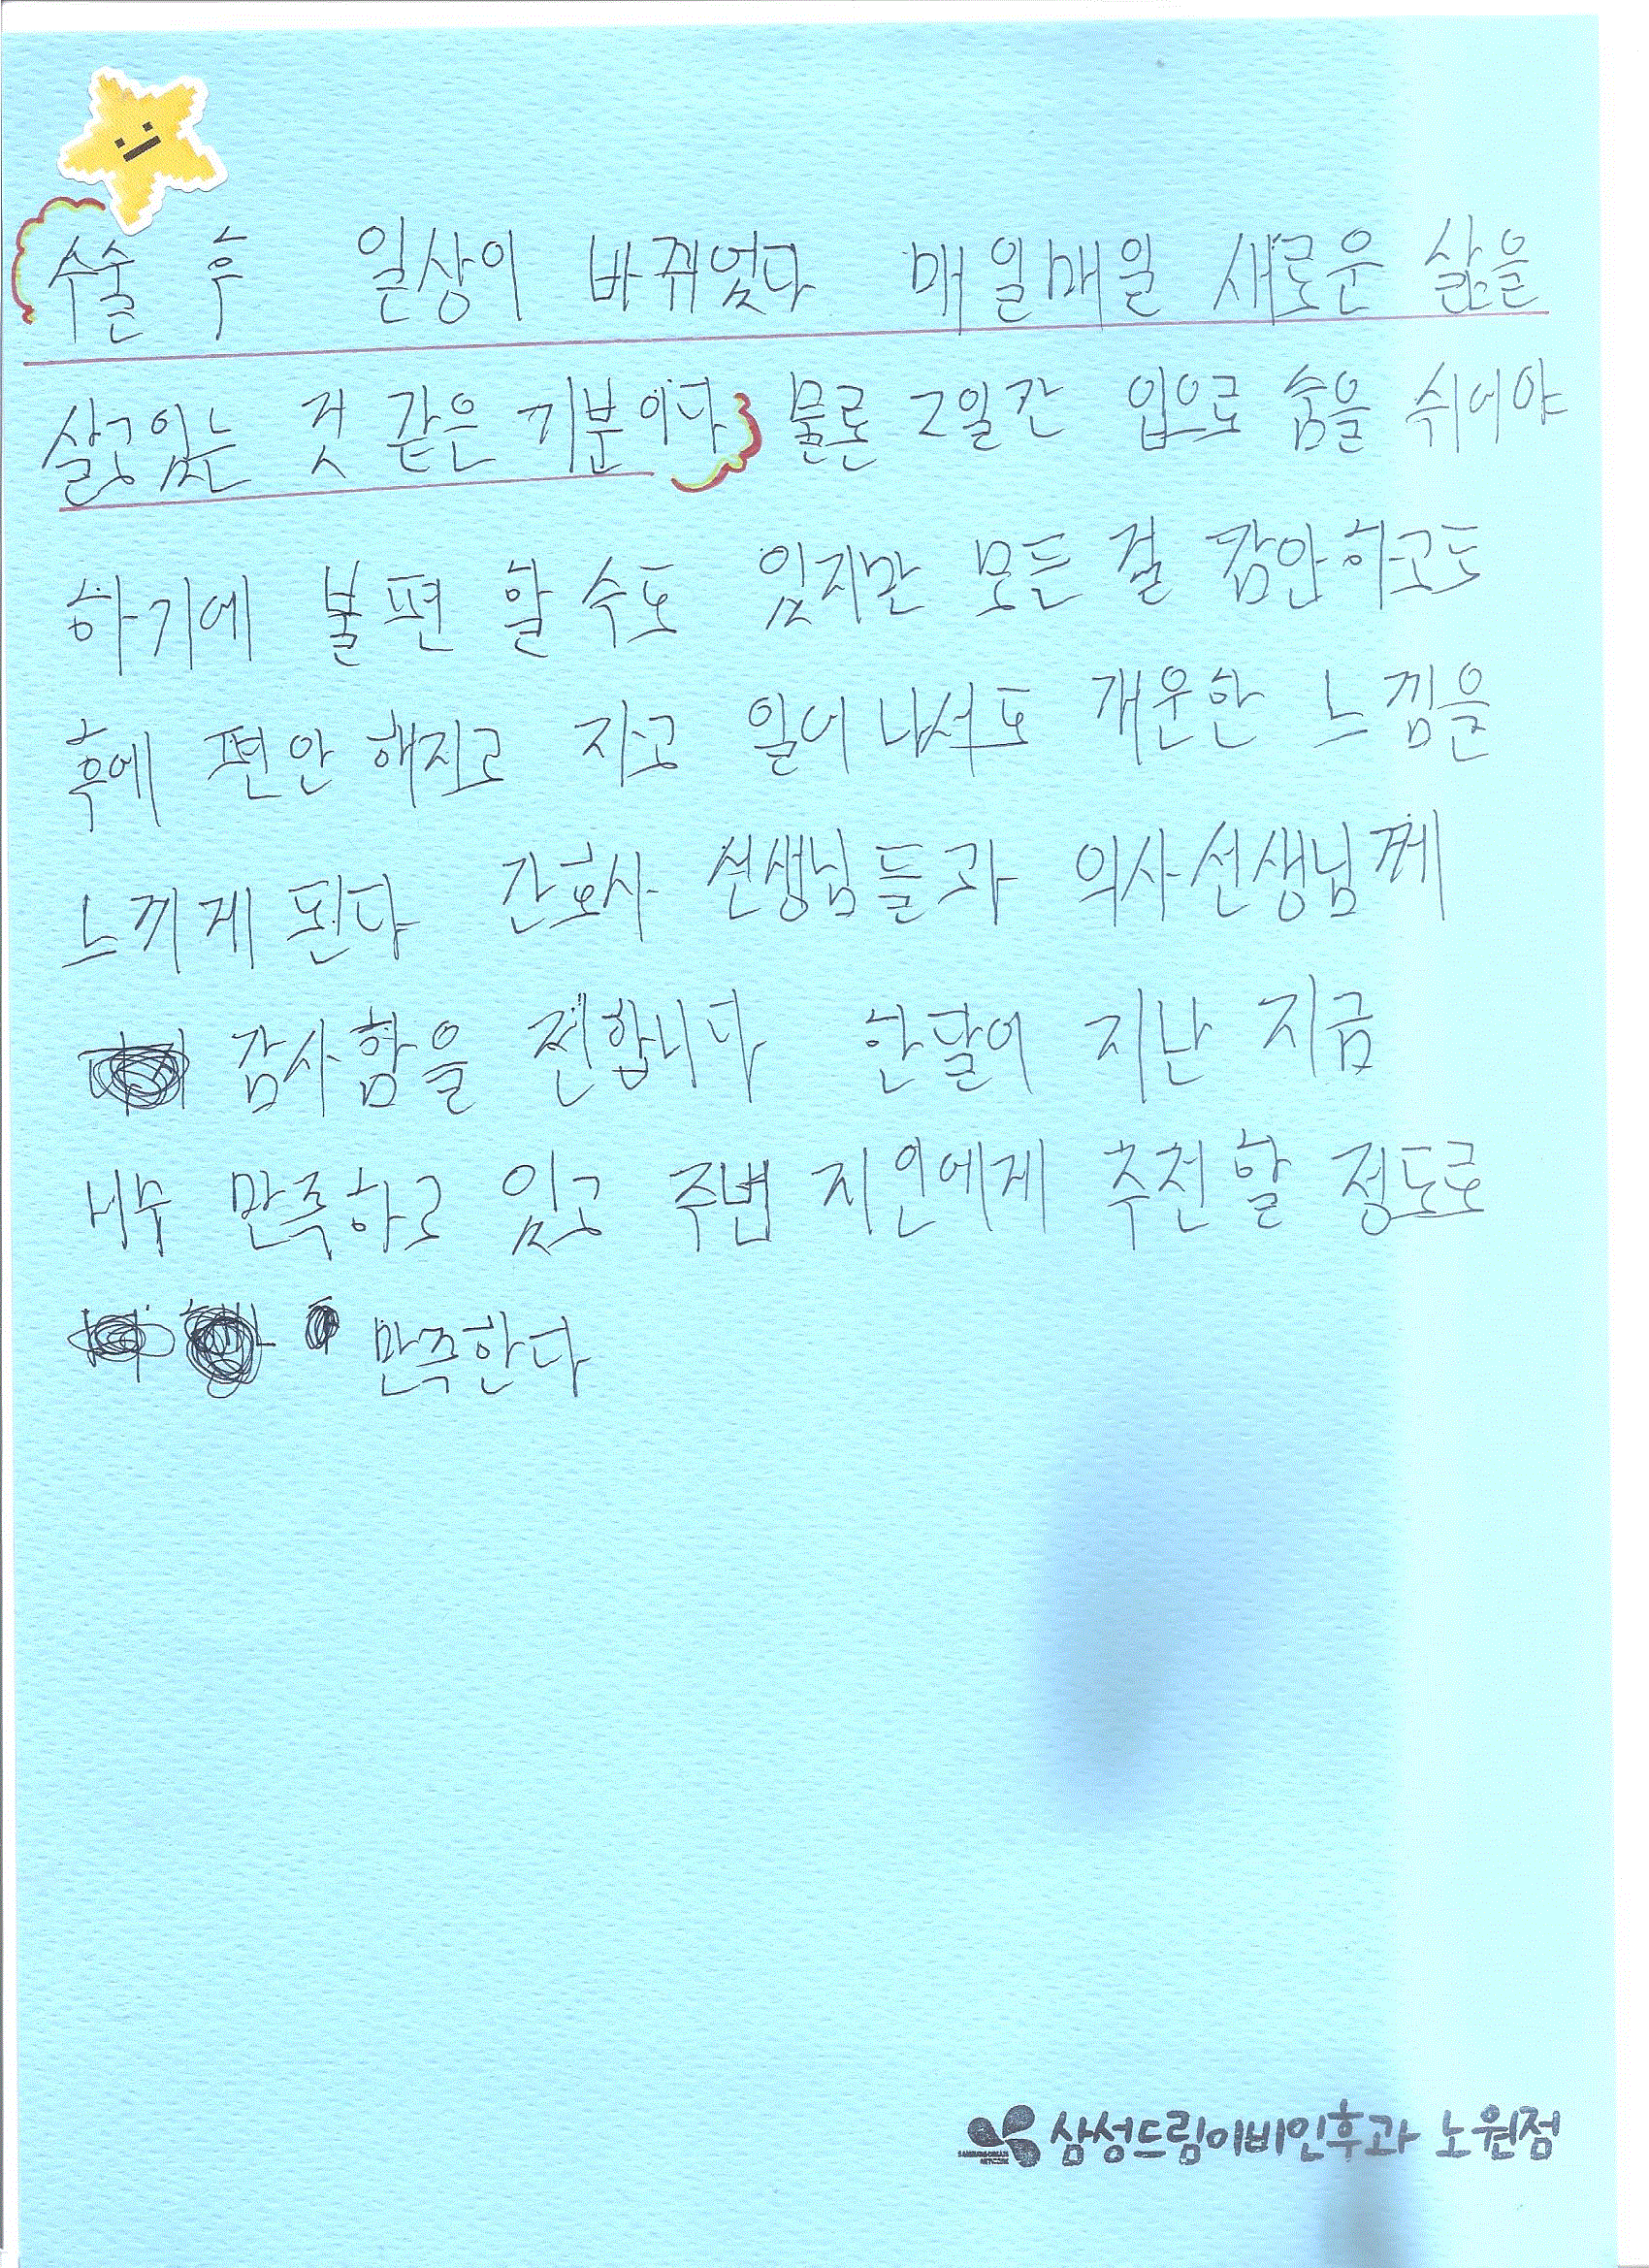 수술 후 일상이 바뀌었다 매일매일 새로운 삶을
살고있는 것 같은 기분이다 물론 2일간 입으로 숨을 쉬어야
하기에 불편 할 수도 있지만 모든 걸 감안하고도
후에 편안 해지고 자고 일어나서도 개운한 느낌을
느끼게 된다 간호사 선생님들과 의사선생님께
감사함을 전합니다 한달이 지난 지금
너무 만족하고 있고 주변 지인에게 추천할 정도로
만족한다
삼성드림이비인후과 노원점